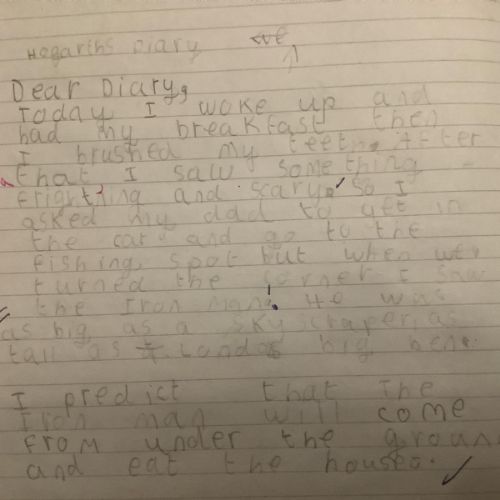 Hogarths Diary
Dear Diary,
Today I woke up and
had my breakfast then
I brushed my teeth. After
that I saw something
frightning and scary, so I
asked my dad to get in
the car and go to the
fishing spot but when we
turned the corner I saw
the Iron man! He was
as big as a skyscraper, as
tall as big ben.
I predict that the
Iron man will come
from under the ground
and eat the houses.